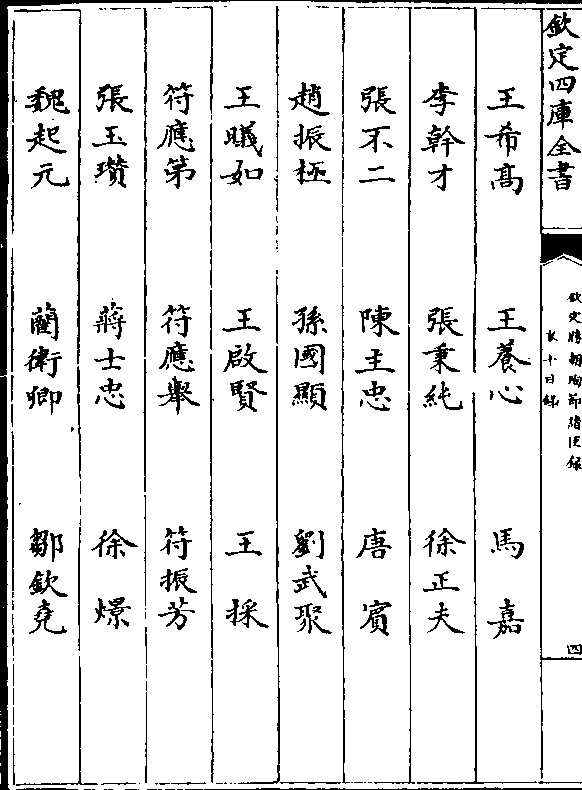 欽定四庫全書
欽定勝朝殉節諸臣録
卷十目録
四
王希髙　王養心　馬嘉
李幹才　張秉純　徐正夫
張不二　陳主忠　唐賓
趙振極　孫國顯　劉武聚
王曦如　王啟賢　王採
符應第　符應舉　符振芳
張玉瓚　蔣士忠　徐燝
魏起元　藺衛卿　鄒欽堯